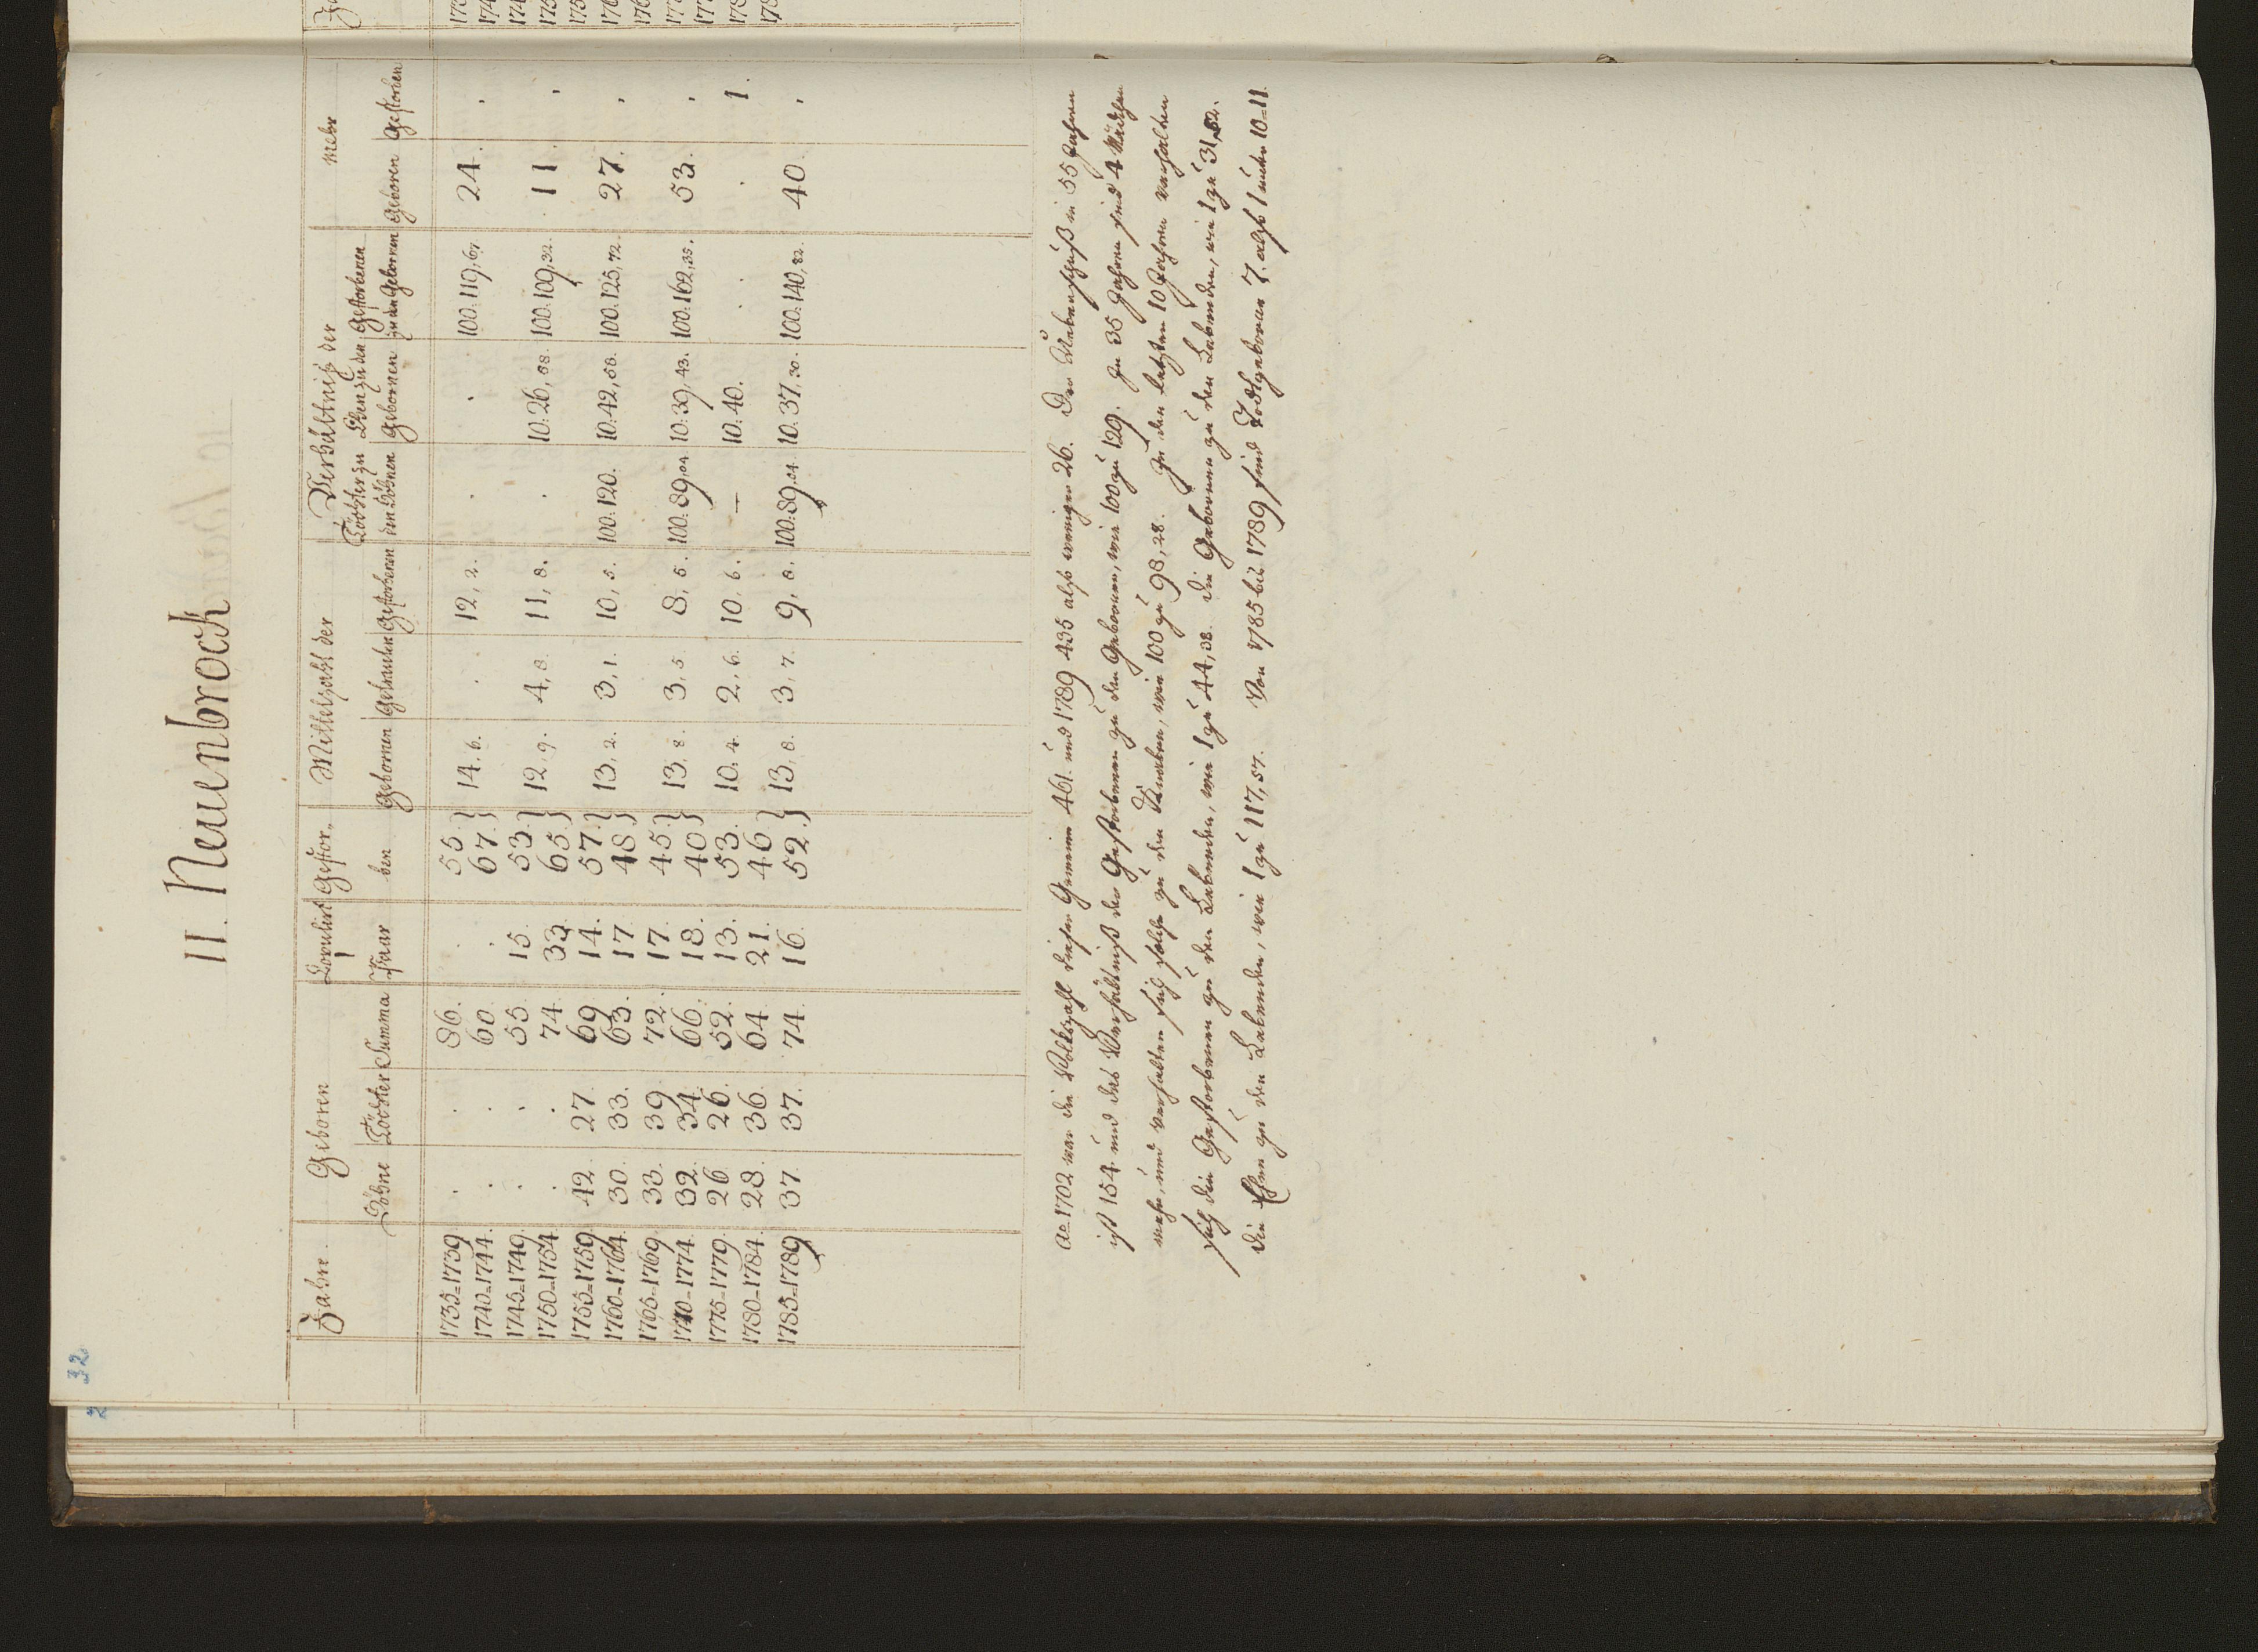 32.
11. Neuenbrock
Jahre. Geboren Copulirt Gestor- Mittelzahl der Verhältniß der mehr
Söhne Töchter Summa Paar ben Gebornen Getrauten Gestorbenen Töchter zu den Söhnen Ehen zu den Gebornen den Gestorbenen zu den Gebornen Geboren Gestorben
1735-1739 . . 86. . 55.
14,6. . 12,2. . . 100:119,67 24. .
1740-1744. . . 60. . 67.
1745-1749. . . 55. 15. 53.
12,9. 4,8. 11,8. . 10:26,88. 100:109,32. 11 .
1750-1754 . . 74. 33. 65.
1755-1759 42. 27. 69 14. 57.
13,2. 3,1. 10,5. 100:120. 10:42,58. 100:125,72. 27. .
1760-1764. 30. 33. 63. 17 48.
1765-1769. 33. 39. 72. 17. 45.
13,8. 3,5. 8,5. 100:89,04. 10:39,43. 100:162,35. 53. .
1770-1774. 32. 34. 66. 18. 40
1775-1779. 26 26. 52. 13. 53. 10,4. 2,6. 10,6. — 10:40. . . . 1.
1780-1784. 28. 36. 64. 21. 46
13,8. 3,7. 9,8. 100:89,04. 10:37,30. 100:140,82. 40. .
1785-1789 37. 37. 74. 16. 52.
Ao 1702 war die Volkszahl dieser Gemeine 461. und 1789 435 also weniger 26. Der Ueberschuß in 55 Jahren
ist 154 und das Verhältniß der Gestorbenen zu den Gebornen, wie 100 zu 129. In 35 Jahren sind 4 Mädchen
mehr, und verhalten sich solche zu den Knaben, wie 100 zu 98,28. In den letzten 10 Jahren verhalten
sich die Gestorbenen zu den Lebenden, wie 1 zu 44,38. Die Gebornen zu den Lebenden, wie 1 zu 31,52.
Die Ehen zu den Lebenden, wie 1 zu 117,57. Von 1785 bis 1789 sind Todtgeboren 7. also 1 unter 10-11.